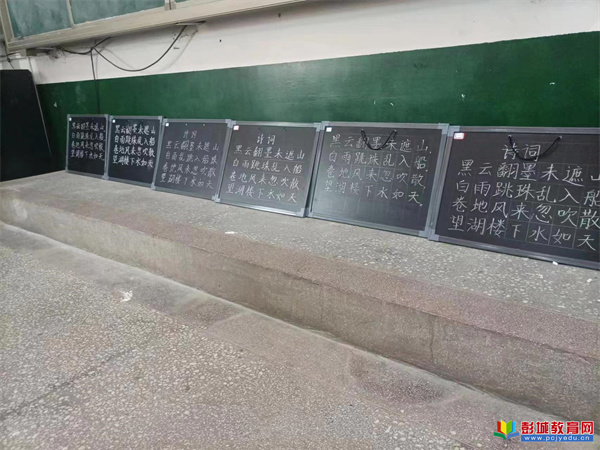 黑云翻墨未遮山
白雨跳珠乱入船
卷地风来忽吹散
望湖楼下水如天
黑云翻墨未遮山
白雨跳珠乱入船
卷地风来忽吹散
望湖楼下水如天
诗词
黑云翻墨未遮山
白雨跳珠乱入船
卷地风来忽吹散
望湖楼下水如天
诗词
黑云翻墨未遮山
白雨跳珠乱入船
卷地风来忽吹散
望湖楼下水如天
黑云翻墨未遮山,
白雨跳珠乱入船。
卷地风来忽吹散,
望湖楼下水如天。
诗词
黑云翻墨未遮山
白雨跳珠乱入船
卷地风来忽吹散
望湖楼下水如天
彭城教育网
www.pcjyedu.cn